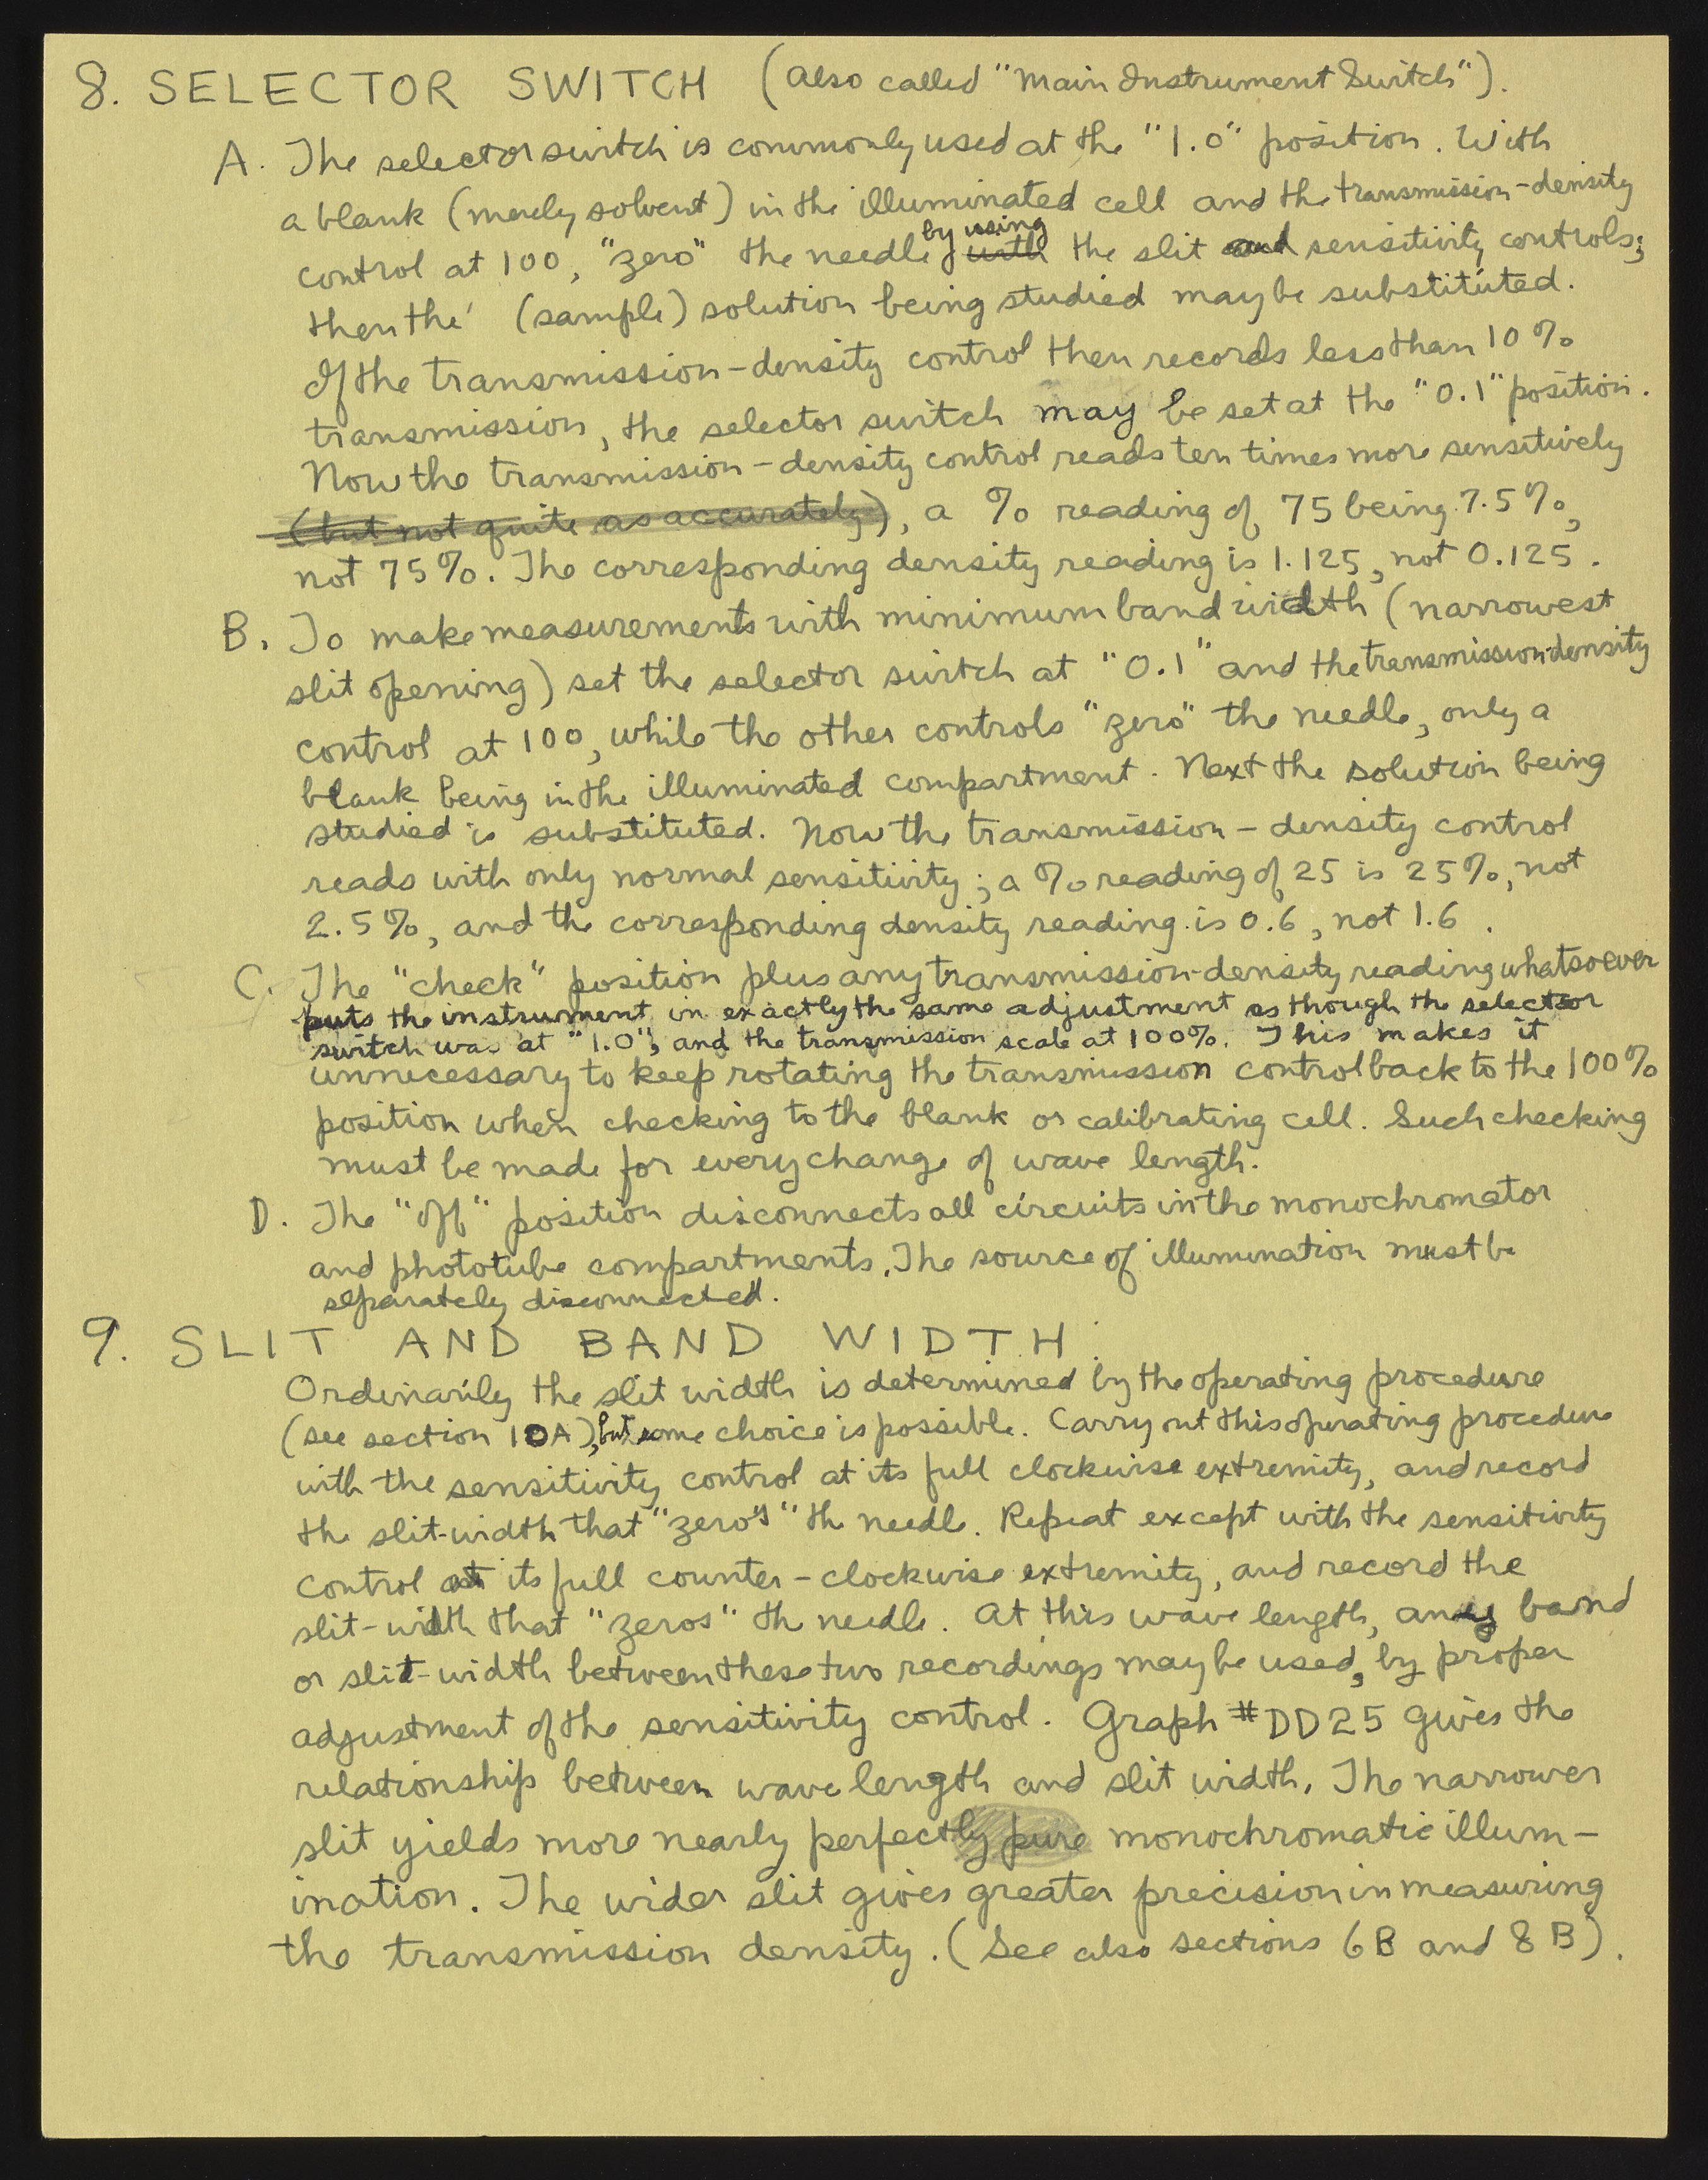 8. SELECTOR SWITCH (Also called "Main Instrument Switch").
A. The selector switch is commonly used at the "1.0" position. With
a blank (merely solvent) in the illuminated cell and the transmission-density
control at 100, "zero" the needle by using with the slit and sensitivity controls;
then the (sample) solution being studied may be substituted.
If the transmission-density control then records less than 10%
transmission, the selector switch may be set at the "0.1" position.
Now the transmission-density control reads ten times more sensitively
(but not quite as accurately), a % reading of 75 being 7.5%,
not 75%. The corresponding density reading is 1.125, not 0.125.
B. To make measurements with minimum band width (narrowest
slit opening) set the selector switch at "0.1" and the transmission-density
control at 100, while the other controls "zero" the needle, only a
blank being in the illuminated compartment. Next the solution being
studied is substituted. Now the transmission-density control
reads with only normal sensitivity; a % reading of 25 is 25%, not
2.5%, and the corresponding density reading is 0.6, not 1.6.
C. The "check" position plus any transmission-density reading whatsoever
puts the instrument in exactly the same adjustment as though the selector
switch was at "1.0", and the transmission scale at 100%. This makes it
unnecessary to keep rotating the transmission control back to the 100%
position when checking to the blank or calibrating cell. Such checking
must be made for every change of wave length.
D. The "off" position disconnects all circuits in the monochromator
and phototube compartments. The source of illumination must be
separately disconnected.
9. SLIT AND BAND WIDTH.
Ordinarily the slit width is determined by the operating procedure
(see section 10A), but some choice is possible. Carry out this operating procedure
with the sensitivity control at its full clockwise extremity, and record
the slit-width that "zero's" the needle. Repeat except with the sensitivity
control at its full counter-clockwise extremity, and record the
slit-width that "zeros" the needle. At this wave length, any band
or slit-width between these two recordings may be used, by proper
adjustment of the sensitivity control. Graph #DD25 gives the
relationship between wave length and slit width. The narrower
slit yields more nearly perfectly pure monochromatic illum-
ination. The wider slit gives greater precision in measuring
the transmission density. (See also sections 6B and 8B).